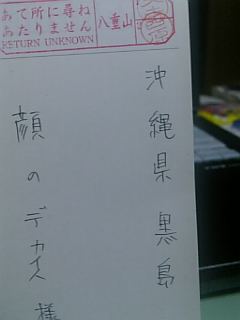 あて所に尋ね
あたりません
RETURN UNKNOWN
八重山
沖縄県黒島
顔のデカイ様